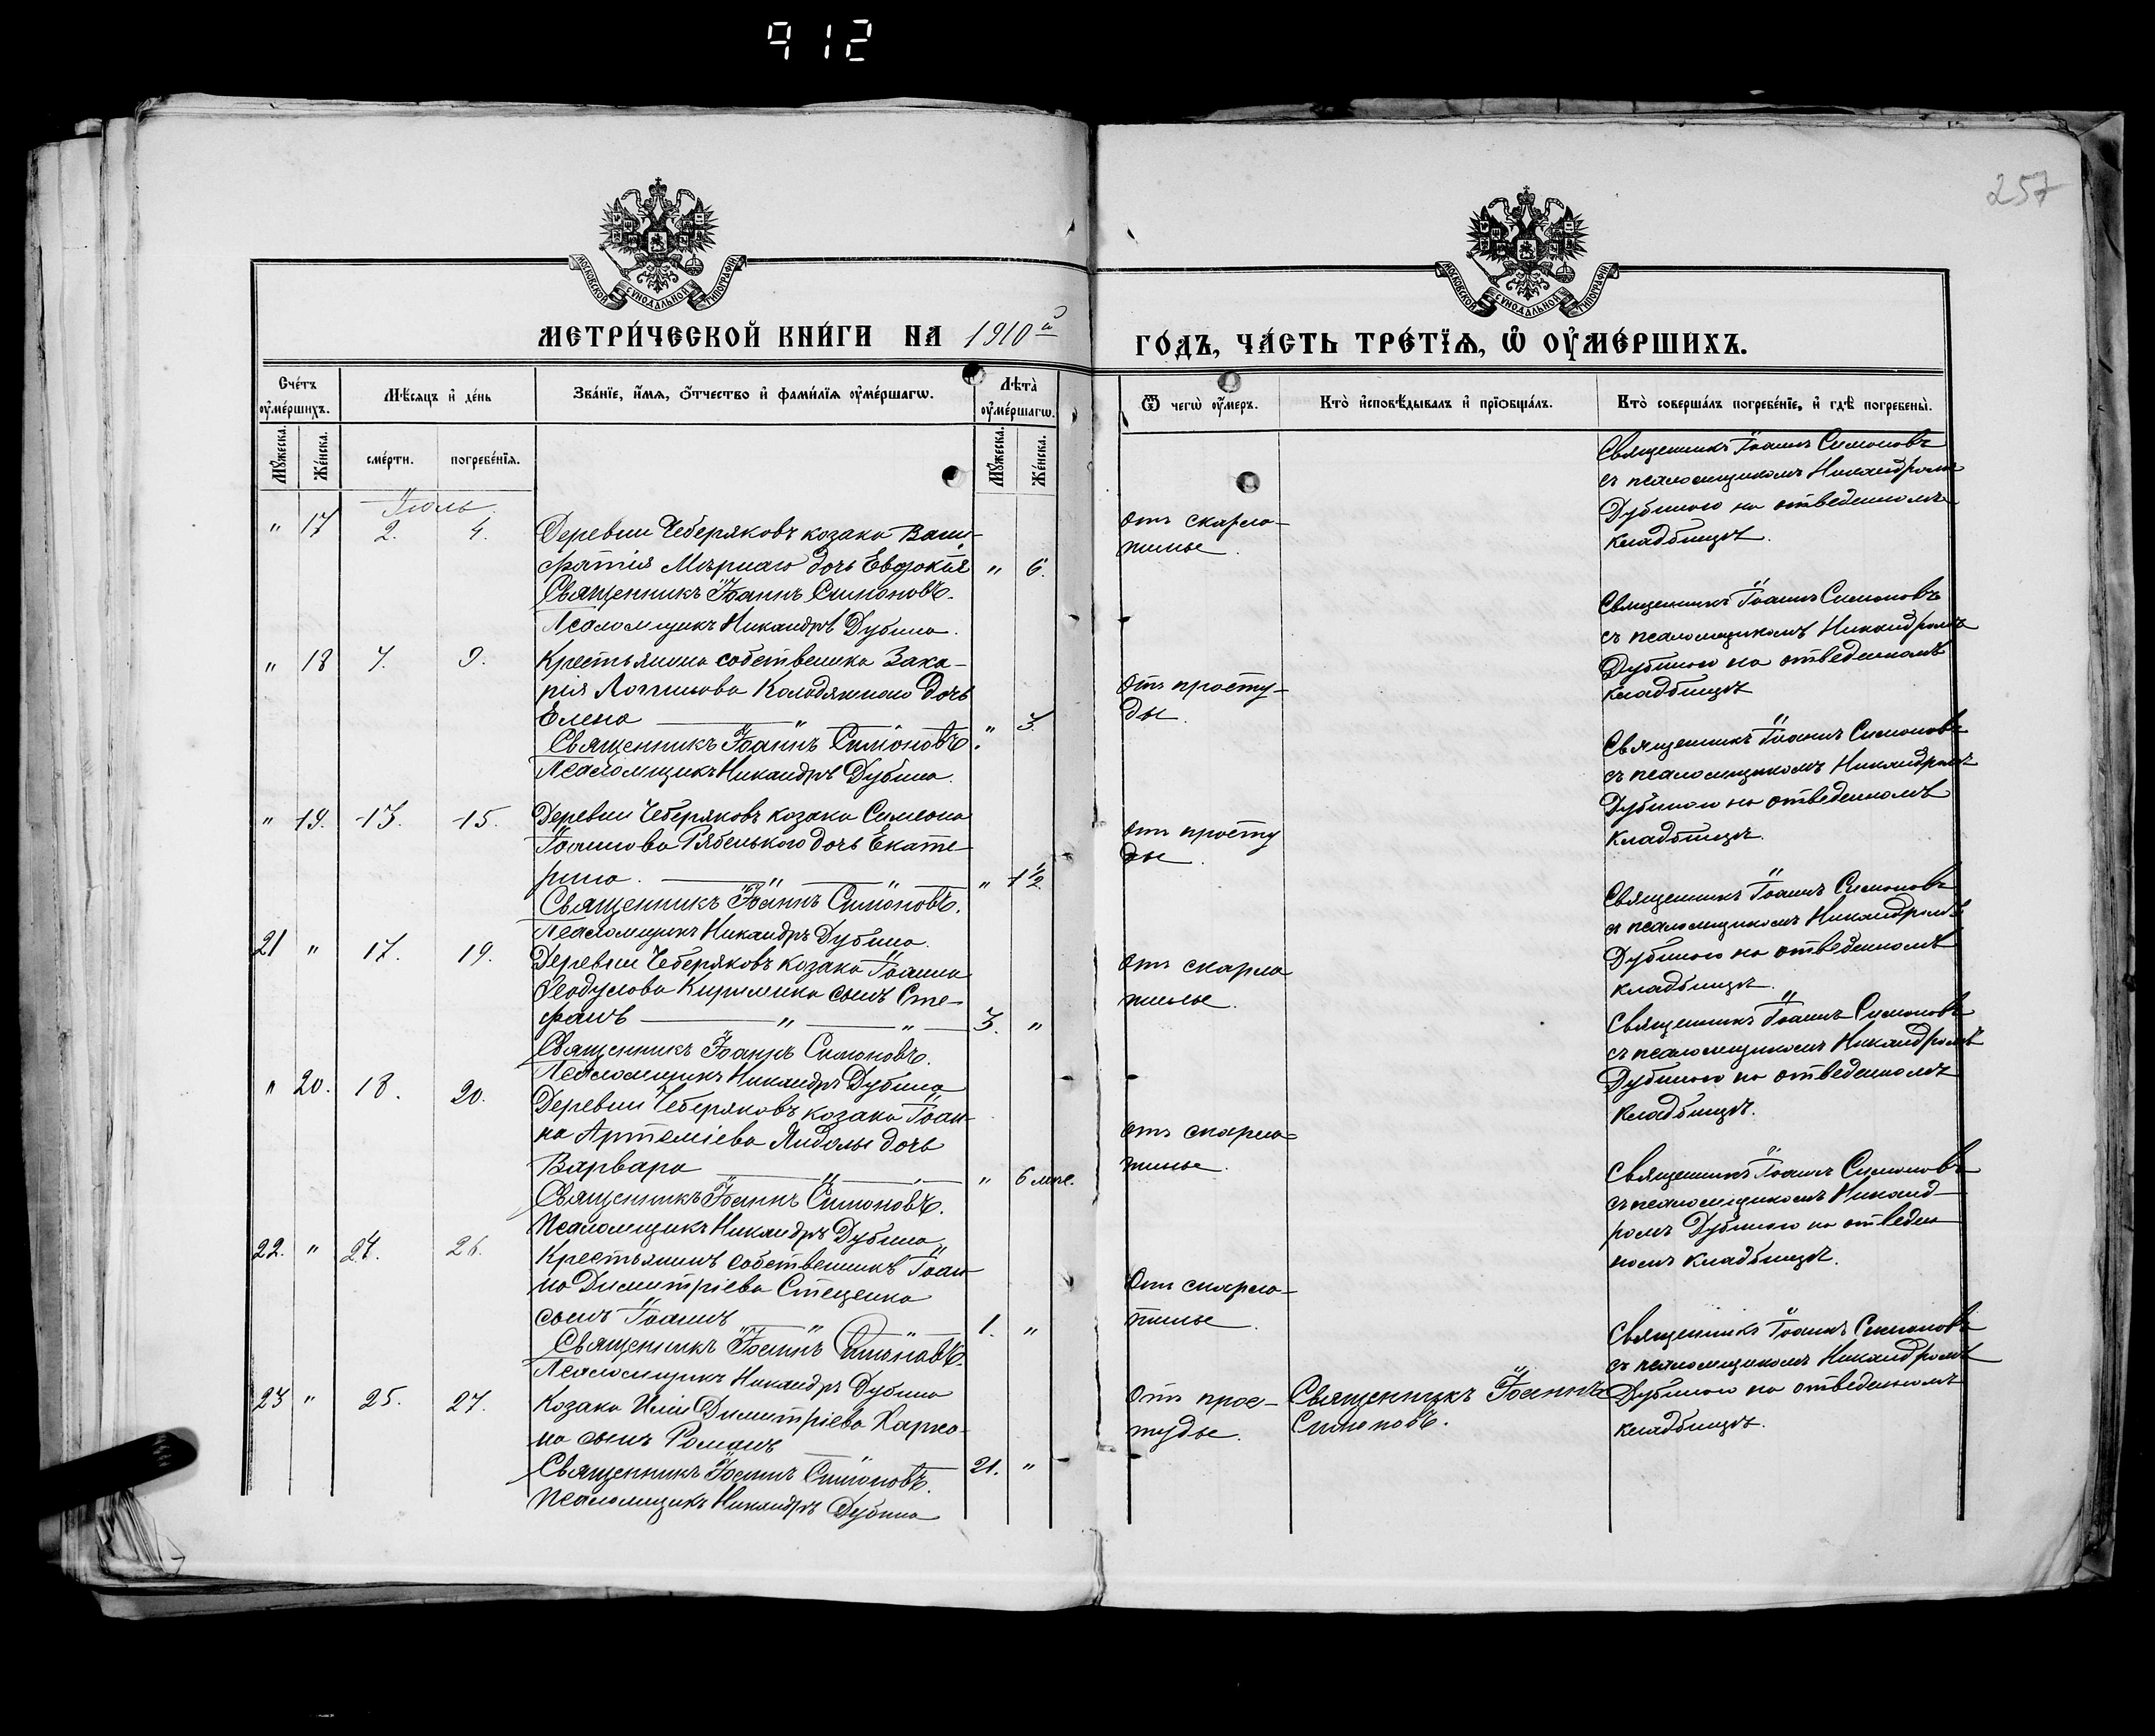 912
257
МОСКОВСКОЙ СѴНОДАЛЬНОЙ ТИПОГРАФІИ
МОСКОВСКОЙ СѴНОДАЛЬНОЙ ТИПОГРАФІИ
МЕТРИ́ЧЕСКОЙ КНИ́ГИ НА 1910й
ГО́ДЪ, ЧА́СТЬ ТРЕ́ТЇѦ, Ѽ ОУ҆МЕ́РШИХЪ.
Сче́тъ оуме́ршихъ.
Мѣ́сяцъ и҆ де́нь
Зва́нїе, и҆́мя, ѻ҆́тчество и҆ фами́лїя оумє́ршагѡ.
Лѣта̀ оумє́ршагѡ.
Мꙋ́жеска.
Же́нска.
сме́рти.
погребе́нїя.
Мꙋ́жеска.
Же́нска.
Ѿ чегѡ̀ оу҆́меръ.
Кто̀ и҆сповѣ́дывалъ и҆ прїѻбща́лъ.
Кто̀ соверша́лъ погребе́нїе, и҆ гдѣ̀ погребены̀.
Іюль
" 17 2. 4.
Деревни Чеберяковъ козака Вони-
фатія Мѣрнаго дочь Евдокія " 6.
Священникъ Іоаннъ Симоновъ.
Псаломщикъ Никандръ Дубина.
Отъ скарла-
тины.
Священникъ Іоаннъ Симоновъ
съ псаломщикомъ Никандромъ
Дубиною на отведенномъ
кладбищѣ.
" 18 7. 9.
Крестьянина собственика Заха-
рія Логинова Колодяжного дочь
Елена " " 3.
Священникъ Іоаннъ Симоновъ.
Псаломщикъ Никандръ Дубина.
Отъ просту-
ды.
Священникъ Іоаннъ Симоновъ
съ псаломщикомъ Никандромъ
Дубиною на отведенномъ
кладбищѣ
" 19. 13. 15.
Деревни Чеберяковъ козака Симеона
Іоаннова Рябенького дочь Екате-
рина. " " 1½
Священникъ Іоаннъ Симоновъ.
Псаломщикъ Никандръ Дубина.
Отъ просту
ды.
Священникъ Іоаннъ Симоновъ
съ псаломщикомъ Никандромъ
Дубиною на отведенномъ
кладбищѣ.
21 " 17. 19.
Деревни Чеберяковъ козака Іоанна
Феодулова сынъ Сте-
фанъ " " 3. "
Священникъ Іоаннъ Симоновъ.
Псаломщикъ Никандръ Дубина
Отъ скарла
тины.
Священникъ Іоаннъ Симоновъ
съ псаломщикомъ Никандромъ
Дубиною на отведенномъ
кладбищѣ.
" 20. 18. 20.
Деревни Чеберяковъ козака Іоан-
на Артеміева дочь
Варвара " " 6 мѣс.
Священникъ Іоаннъ Симоновъ.
Псаломщикъ Никандръ Дубина
Отъ скарла-
тины.
Священникъ Іоаннъ Симоновъ
съ псаломщикомъ Никандромъ
Дубиною на отведенномъ
кладбищѣ.
22. " 24. 26.
Крестьянинъ собственникъ Іоан-
на Димитріева Стеценка
сынъ Іоаннъ " 1. "
Священникъ Іоаннъ Симоновъ.
Псаломщикъ Никандръ Дубина
Отъ скарла-
тины.
Священникъ Іоаннъ Симоновъ
съ псаломщикомъ Никанд-
ромъ Дубиною на отведен
номъ кладбищѣ.
23 " 25. 27.
Козака Иліи Димитріева Харча-
на сынъ Романъ
21. "
Священникъ Іоаннъ Симоновъ.
Псаломщикъ Никандръ Дубина
Отъ прос-
туды.
Священникъ Іоаннъ
Симоновъ.
Священникъ Іоаннъ Симоновъ
съ псаломщикомъ Никандромъ
Дубиною на отведенномъ
кладбищѣ.